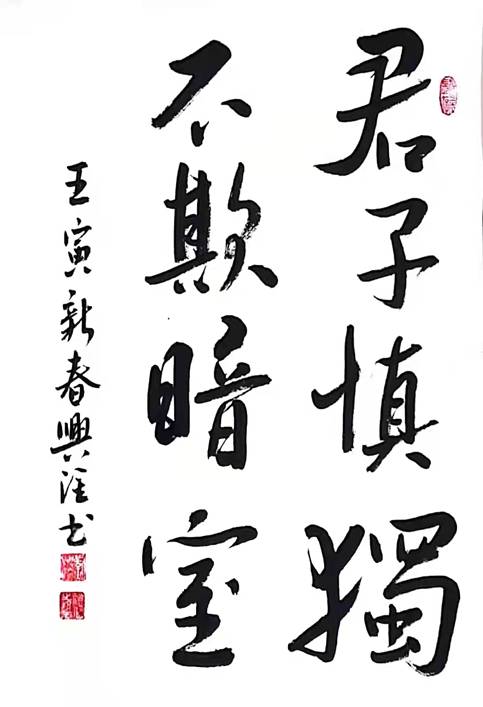 君子慎獨
不欺暗室
壬寅新春興滏书